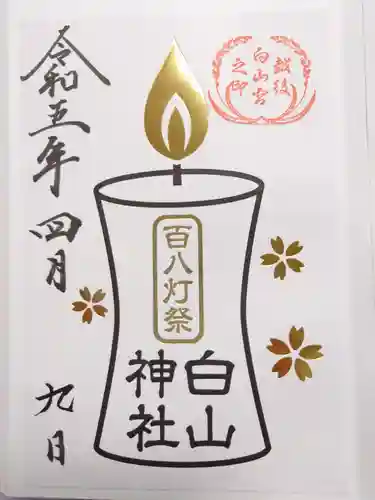 越後
白山宮
之印
百八灯祭
白山
神社
令和五年四月
九日